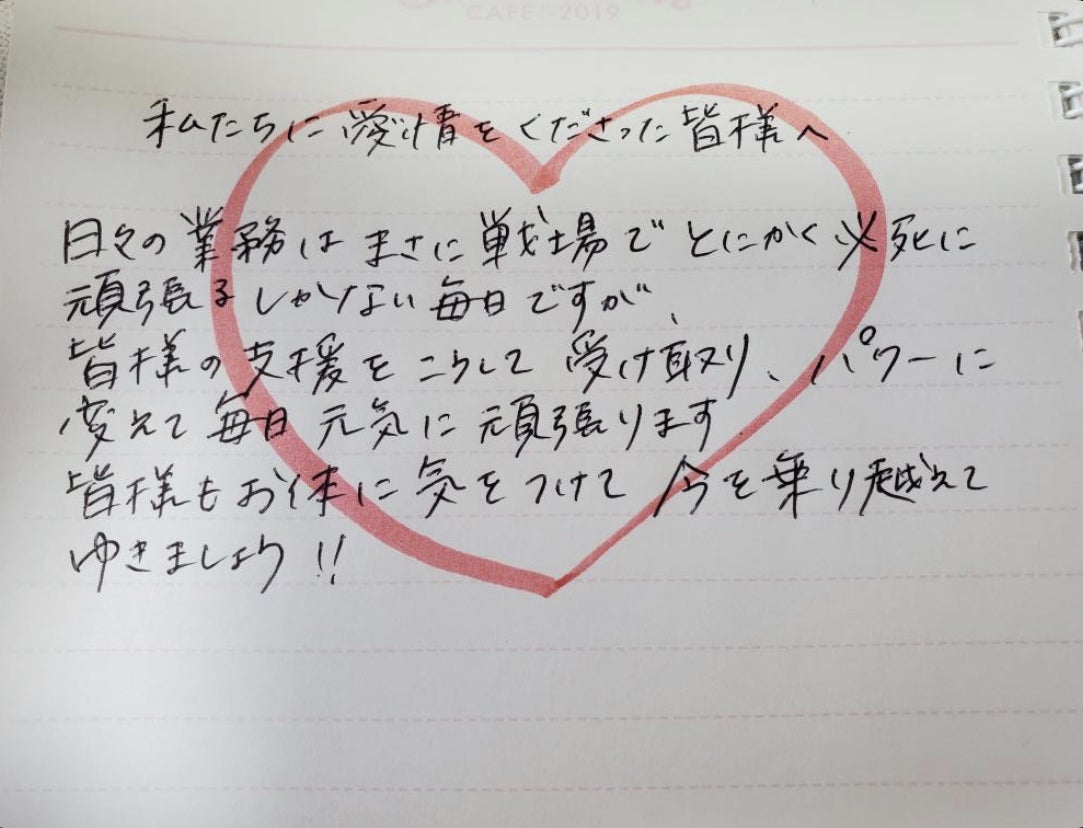 CAFE 2019
私たちに愛情をくださった皆様へ
日々の業務はまさに戦場でとにかく必死に
頑張るしかない毎日ですが、
皆様の支援をこうして受け取り、パワーに
変えて毎日元気に頑張ります
皆様もお体に気をつけて今を乗り越えて
ゆきましょう!!